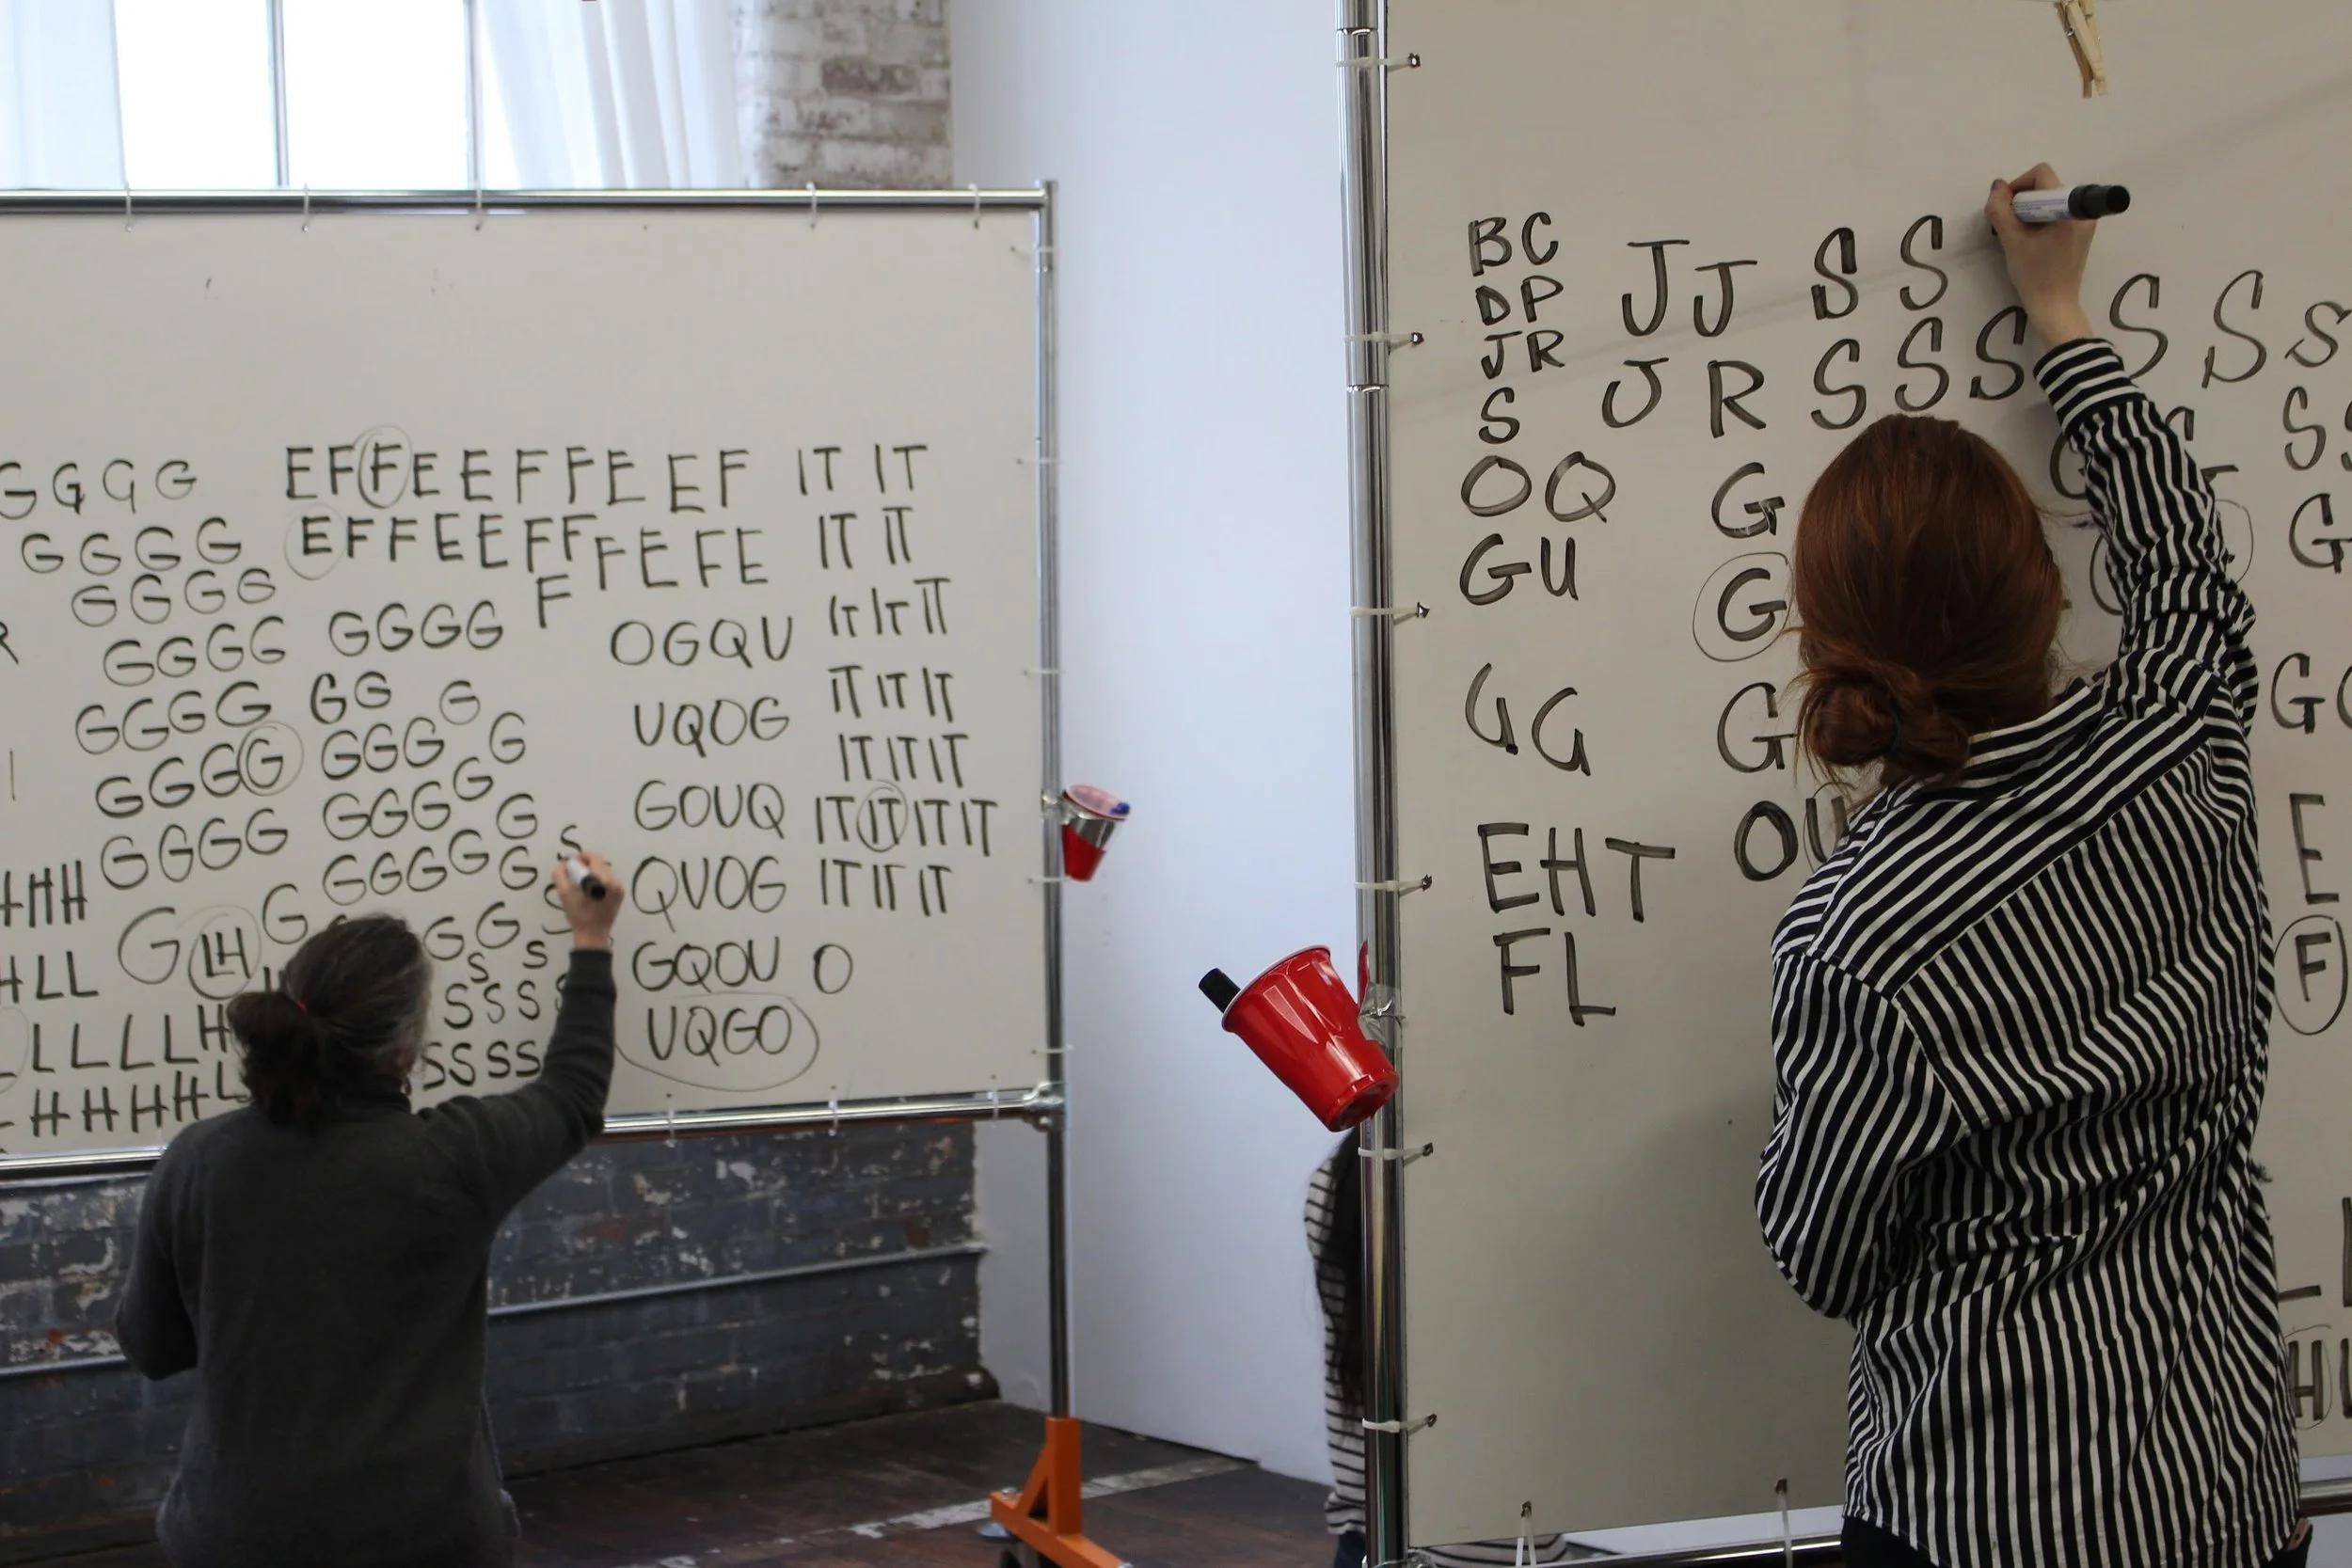 GGGG EFFEEFFEEF IT IT
GGGG EFFEEFFFEFE IT IT
GGGG F
GGGG GGGG OGQU IT IT IT
GGGG GG G UQOG IT IT IT
GGGG GGG G IT IT IT
GGGG GGGG G GOUQ IT IT IT IT
HH GGGGG G S QUOG IT IT IT
G LH G GG S GQOU O
HLL S S
LLLLH SSS UQGO
HHHHL SSSS
BC JJ SS
DP S S S
JR JR SSS
S SS
OQ G
GU G G
GG G G
EHT OU E
FL F